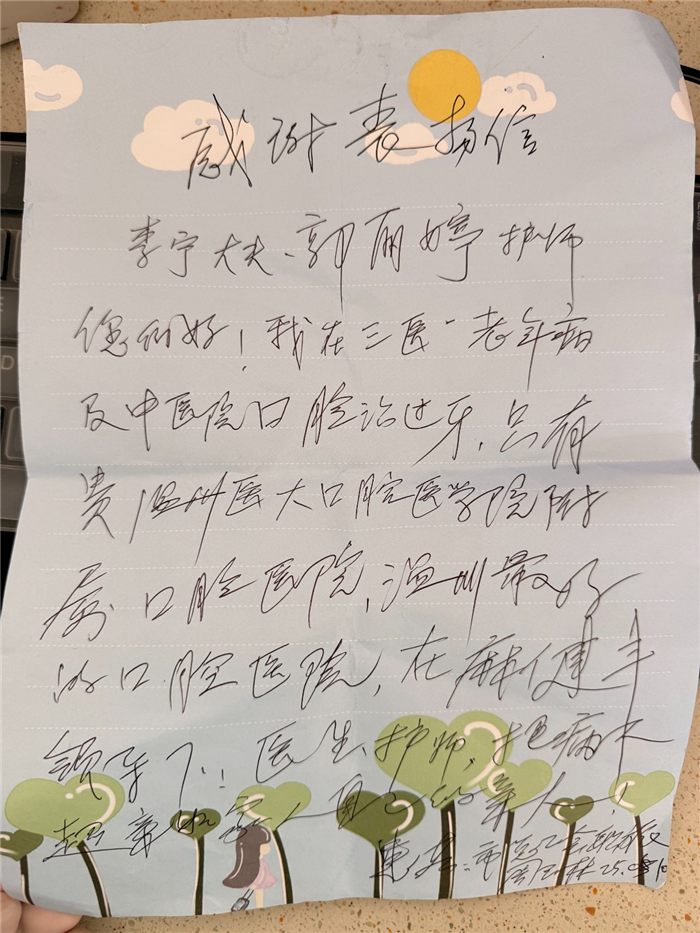 感谢表扬信
李宁大夫、郭丽婷护师
您们好！我在三医一老年病
及中医院口腔治过牙，只有
贵温州医大口腔医学院附
属口腔医院，温州最好
的口腔医院，在麻健丰
领导下!! 医生、护师，把病人
当 亲人 自己的亲人！
患者：
25.08.10